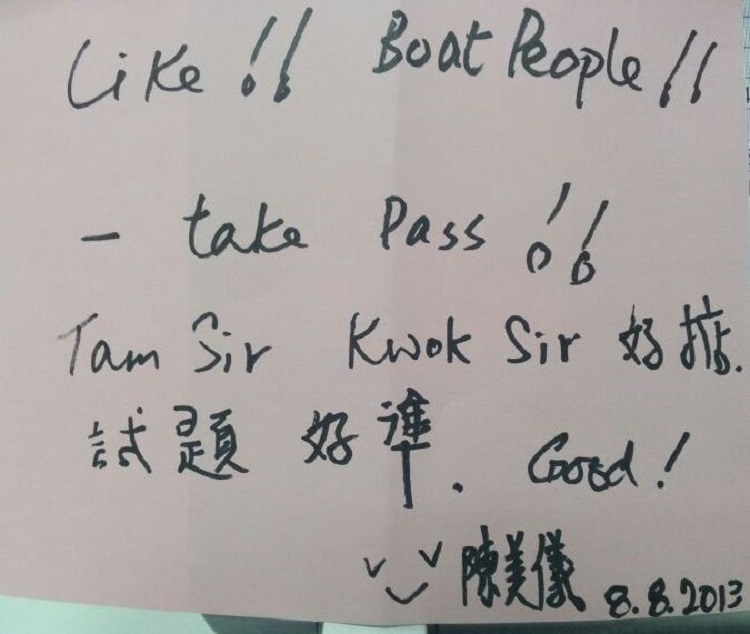 Like !! Boat People !!
一 take Pass !!
Tam Sir Kwok Sir 好掂.
試題 好準. Good!
陳美儀 8.8.2013